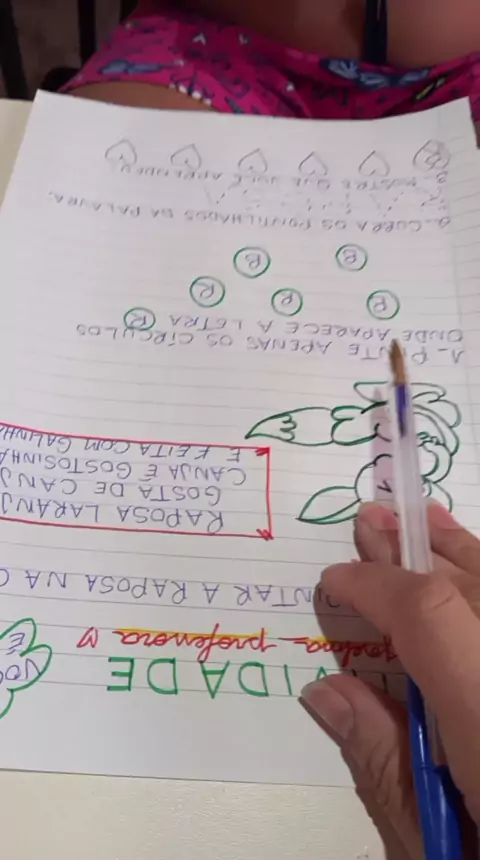 IVIDADE
VOC
É
professora
PINTAR A RAPOSA NA C
RAPOSA LARANJ
GOSTA DE CANJ
CANJA É GOSTOSINHA
E FEITA COM GALINHA
1- PINTE APENAS OS CÍRCULOS
ONDE APARECE A LETRA R
R P R
B B
CUBRA OS PONTILHADOS DA PALAVRA.
MOSTRE QUE VOCÊ APRENDEU